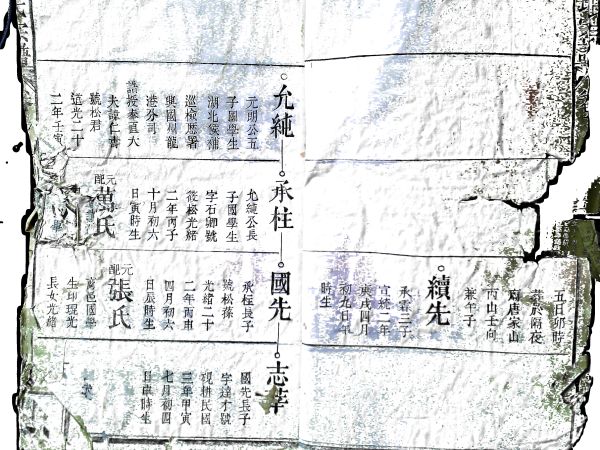 五日卯時
唐家山
丙山壬向
兼午子
續先
承霖三子
宣統二年
庚戌四月
初九日午
時生
允純
元朗公五
子國學生
湖北候補
巡檢歷署
興國州龍
港分司
誥授奉直大
夫諱仁
號松君
道光二十
二年壬寅
承柱
允純公長
子國學生
字石卿號
筱松光緒
二年丙子
十月初六
日寅時生
元配
萬氏
國先
承柱長子
號松蓀
光緒二十
二年丙申
四月初六
日辰時生
元配
張氏
高邑國學
生印琨光
長女光緒
志華
國先長子
字達才號
視耕民國
三年甲寅
七月初四
日申時生